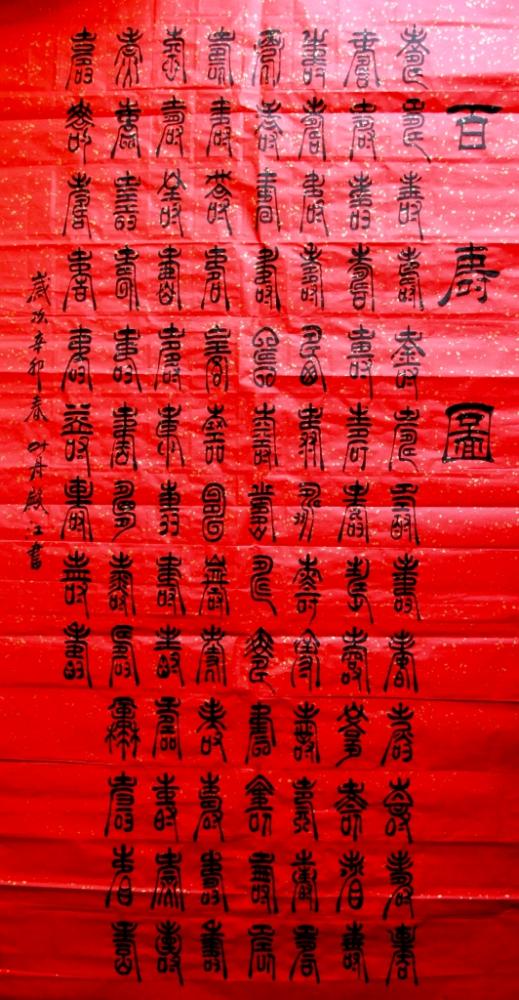 百壽圖
壽壽壽壽壽壽壽壽壽壽壽壽壽
壽壽壽壽壽壽壽壽壽壽壽壽壽
壽壽壽壽壽壽壽壽壽壽壽壽壽
壽壽壽壽壽壽壽壽壽壽壽壽壽
壽壽壽壽壽壽壽壽壽壽壽壽壽
壽壽壽壽壽壽壽壽壽壽壽壽壽
壽壽壽壽壽壽壽壽壽壽壽壽壽
壽壽壽壽壽壽壽壽壽
歲次辛卯春 丹殿江書